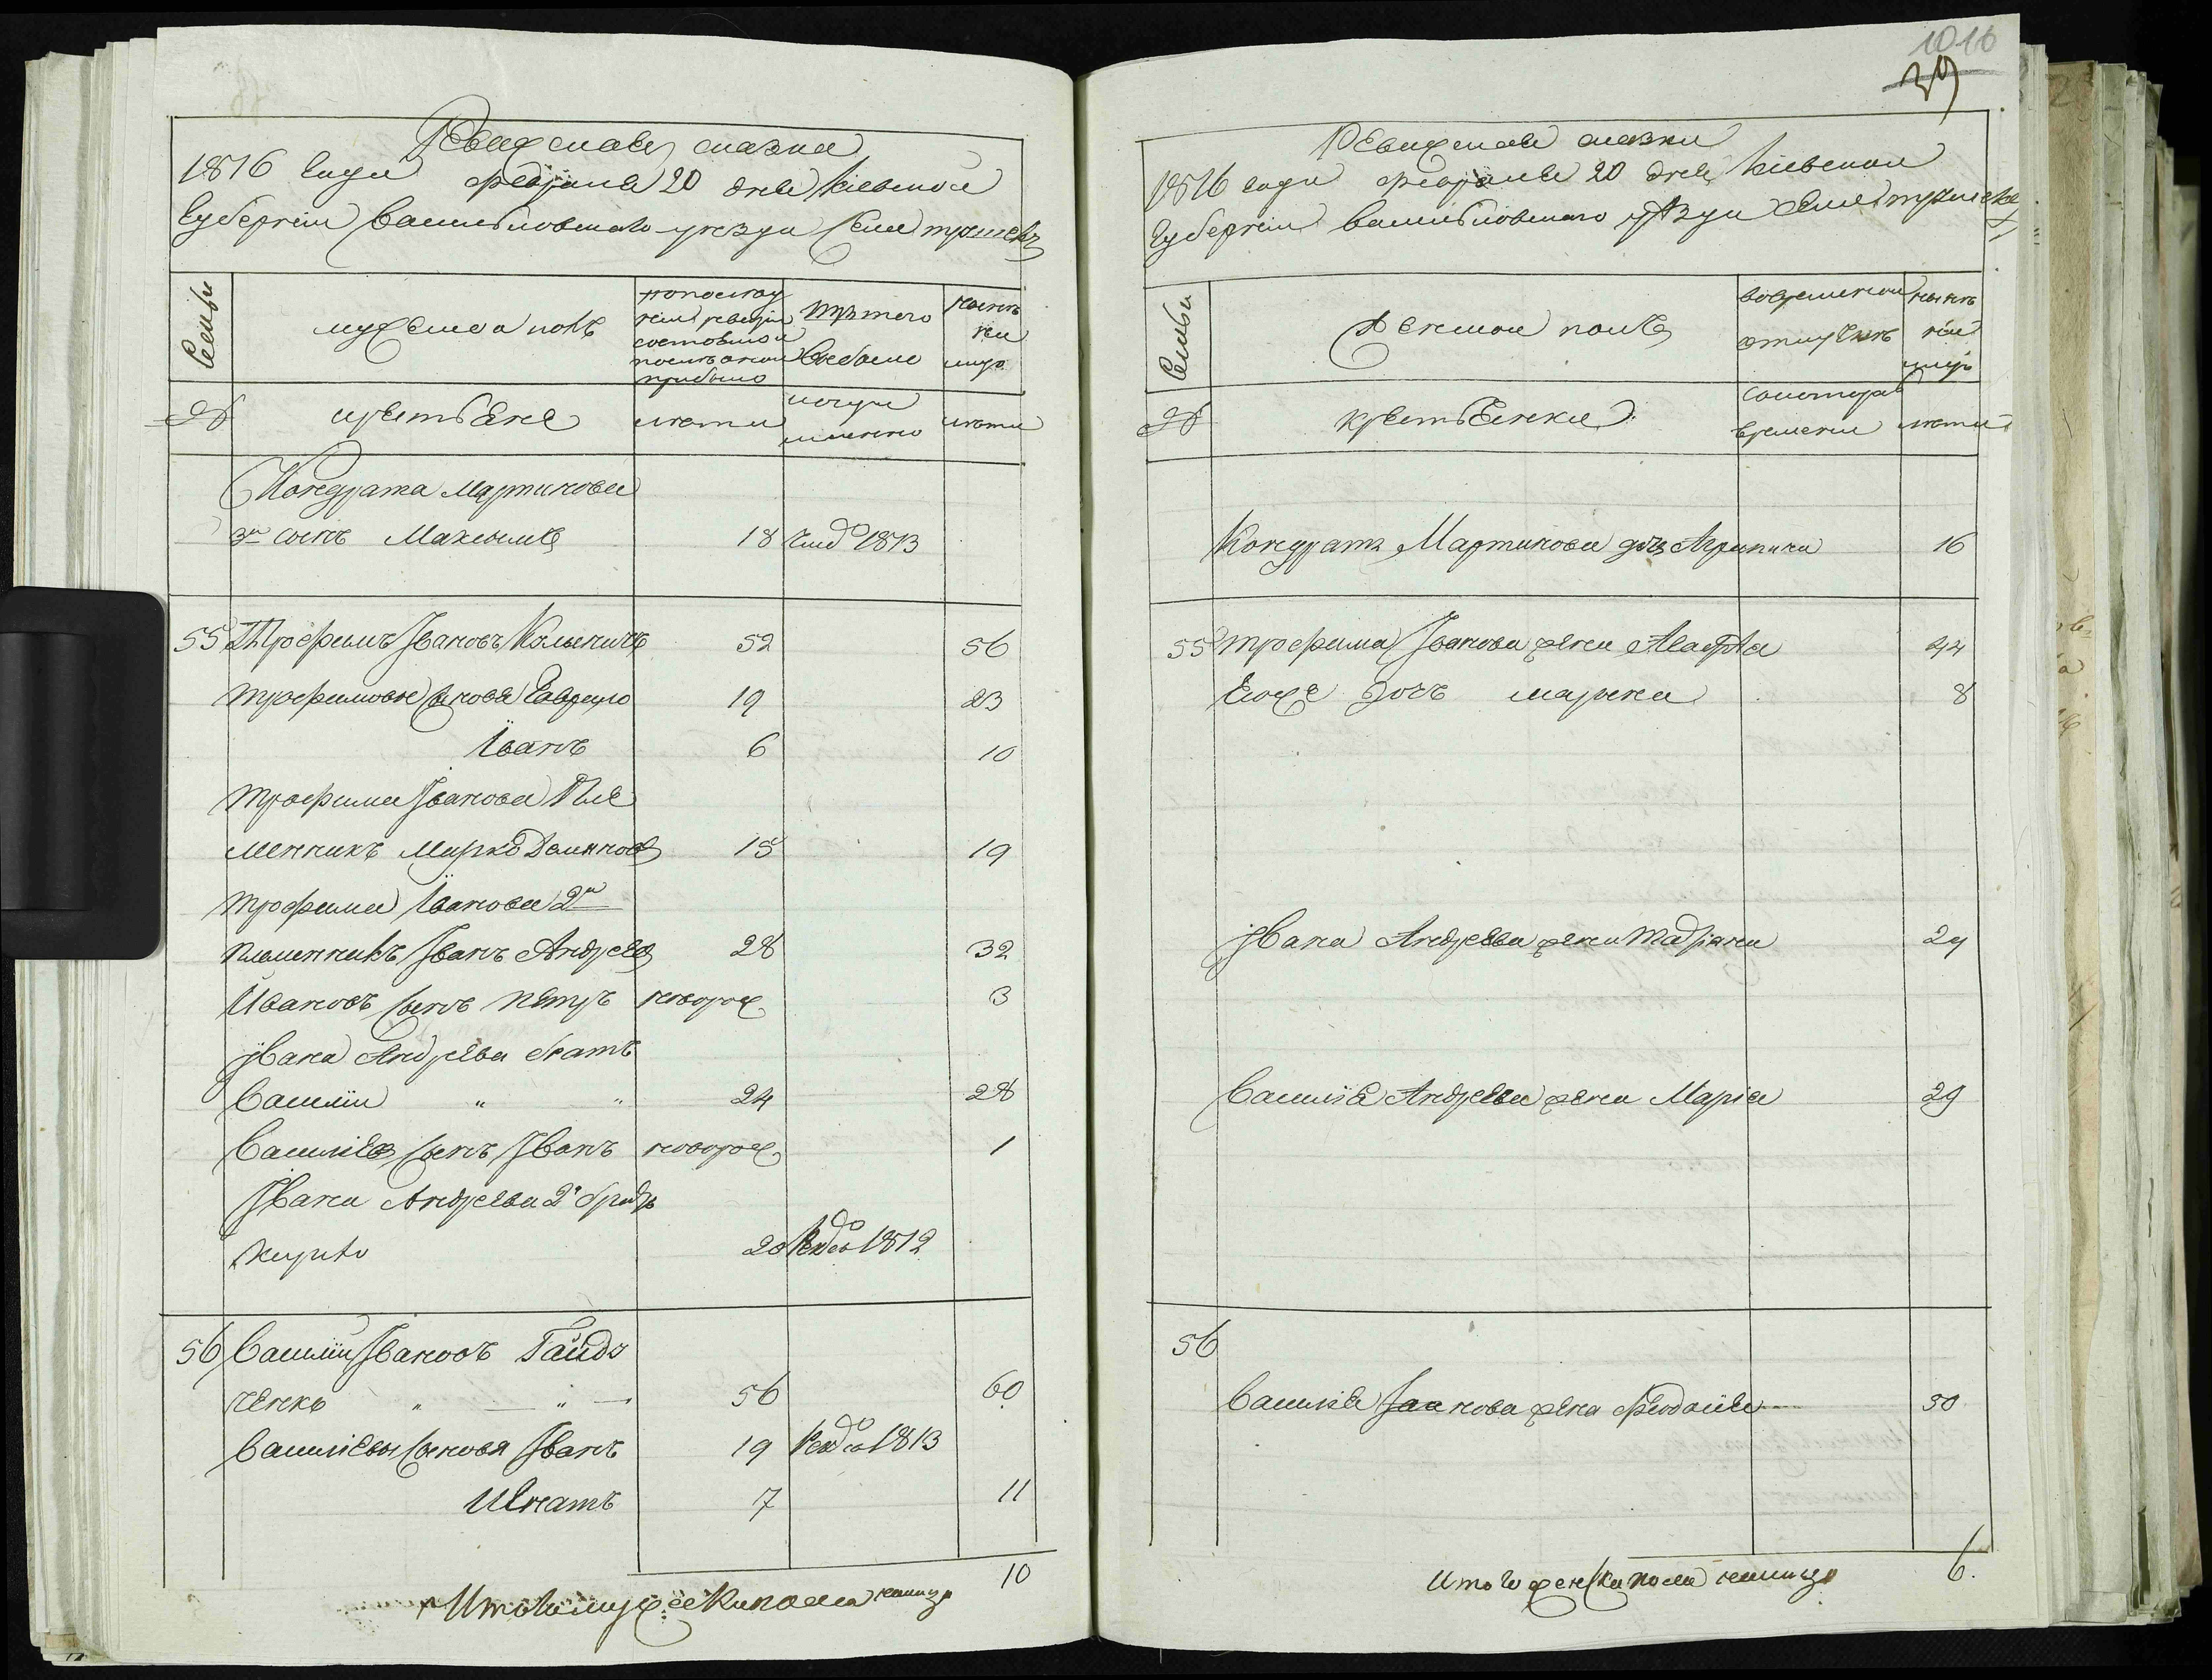 Ревижская сказка
1816 года февраля 20 дня Киевской
Губернии Василковского уезда Села
Семьи
мужеска полъ
по последней ревизии состояло и после оной прибыло
Изъ того выбыло
Ныне на лицо
№
крестьяне
лета
когда именно
лета
Кондрата Мартинова
3й сынъ Максимъ 18 1813
55 Трофимъ Ивановъ 52 56
Трофимовы сыновя Гаврило 19 23
Іванъ 6 10
Трофима Іванова Пле
менникъ Марко 15 19
Трофима Іванова 2й
племенникъ Іванъ Андреев 28 32
Ивановъ сынъ Петръ новорож 3
Івана Андреева братъ
Василій " " 24 28
Василіев сынъ Іванъ новорож 1
Івана Андреева 2й братъ
Кирило 20 1812
56 Василій Івановъ Гайдо
ченко " " 56 60
Василіевы сыновя Іванъ 19 1813
Игнатъ 7 11
Итого мужеска пола налицо 10
1016
29
Ревижская сказка
1816 года февраля 20 дня Киевской
Губернии Василковского уезда Села
Семьи
Женской полъ
во временной отлучке
ныне на лицо
№
крестьянки
с которого времени
лета
Кондрата Мартинова дочь Агрипина 16
55 Трофима Іванова жена Агафія 44
Егоже дочь Марина 8
Івана Андреева жена 29
Василіа Андреева жена Марія 29
56
Василіа Іванова жена Феодосія 50
Итого женска пола налицо 6.